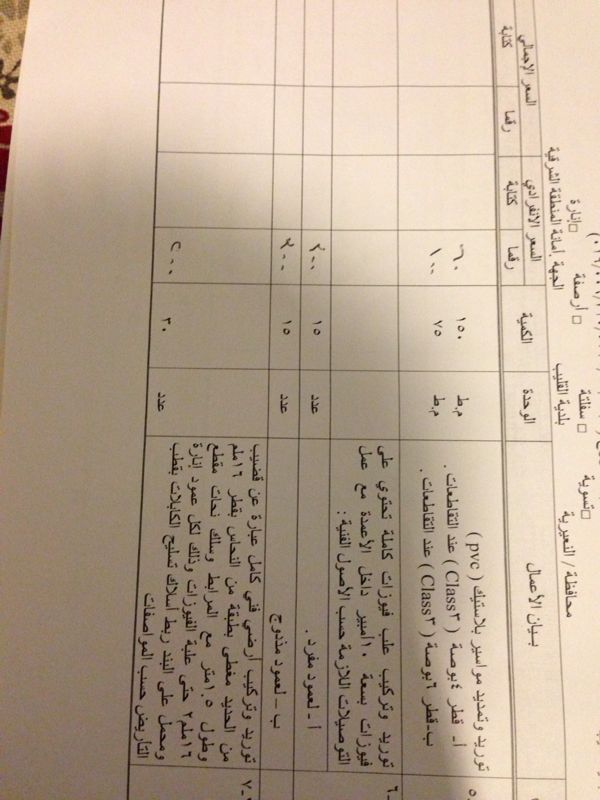 □تسوية □ سفلتة □ أرصفة □إنارة
محافظة / النعيرية بلدية القليب الجهة :أمانة المنطقة الشرقية
بيان الأعمال الوحدة الكمية السعر الانفرادي السعر الإجمالي
رقما كتابة رقما كتابة
توريد وتمديد مواسير بلاستيك ( pvc )
أ- قطر ٤ بوصة ( Class٣ ) عند التقاطعات . م.ط ١٥٠ ٦٠
ب-قطر ٦ بوصة ( Class٣ ) عند التقاطعات . م.ط ٧٥ ١٠٠
٦-
توريد وتركيب علب فيوزات كاملة تحتوي على
فيوزات بسعة ١٠أمبير داخل الأعمدة مع عمل
التوصيلات اللازمة حسب الأصول الفنية :
أ - لعمود مفرد . عدد ١٥ ٢٠٠
ب – لعمود مزدوج عدد ١٥ ٣٠٠
٧-
توريد وتركيب أرضي فني كامل عبارة عن قضيب
من الحديد مغطى بطبقة من النحاس بقطر ١٦ملم
وطول ١.٥متر مع المرابط وسلك نحات مقطع
١٦ملم٢ حتى علبة الفيوزات وذلك لكل عمود إنارة
ومحمل على البند ربط أسلاك تسليح الكابلات بقطب
التأريض حسب المواصفات عدد ٣٠ ٢٠٠